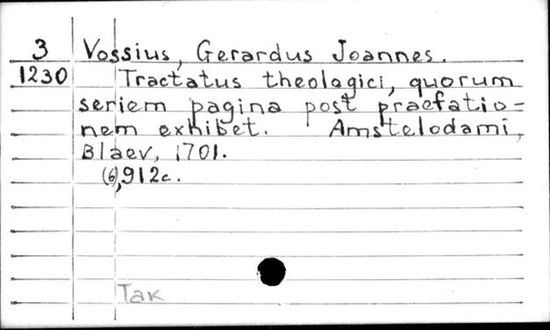 3 Vossius, Gerardus Joannes.
1230 Tractatus theologici, quorum
seriem pagina post praefatio=
nem exhibet. Amstelodami,
Blaev, 1701.
(6),912c.
Tak